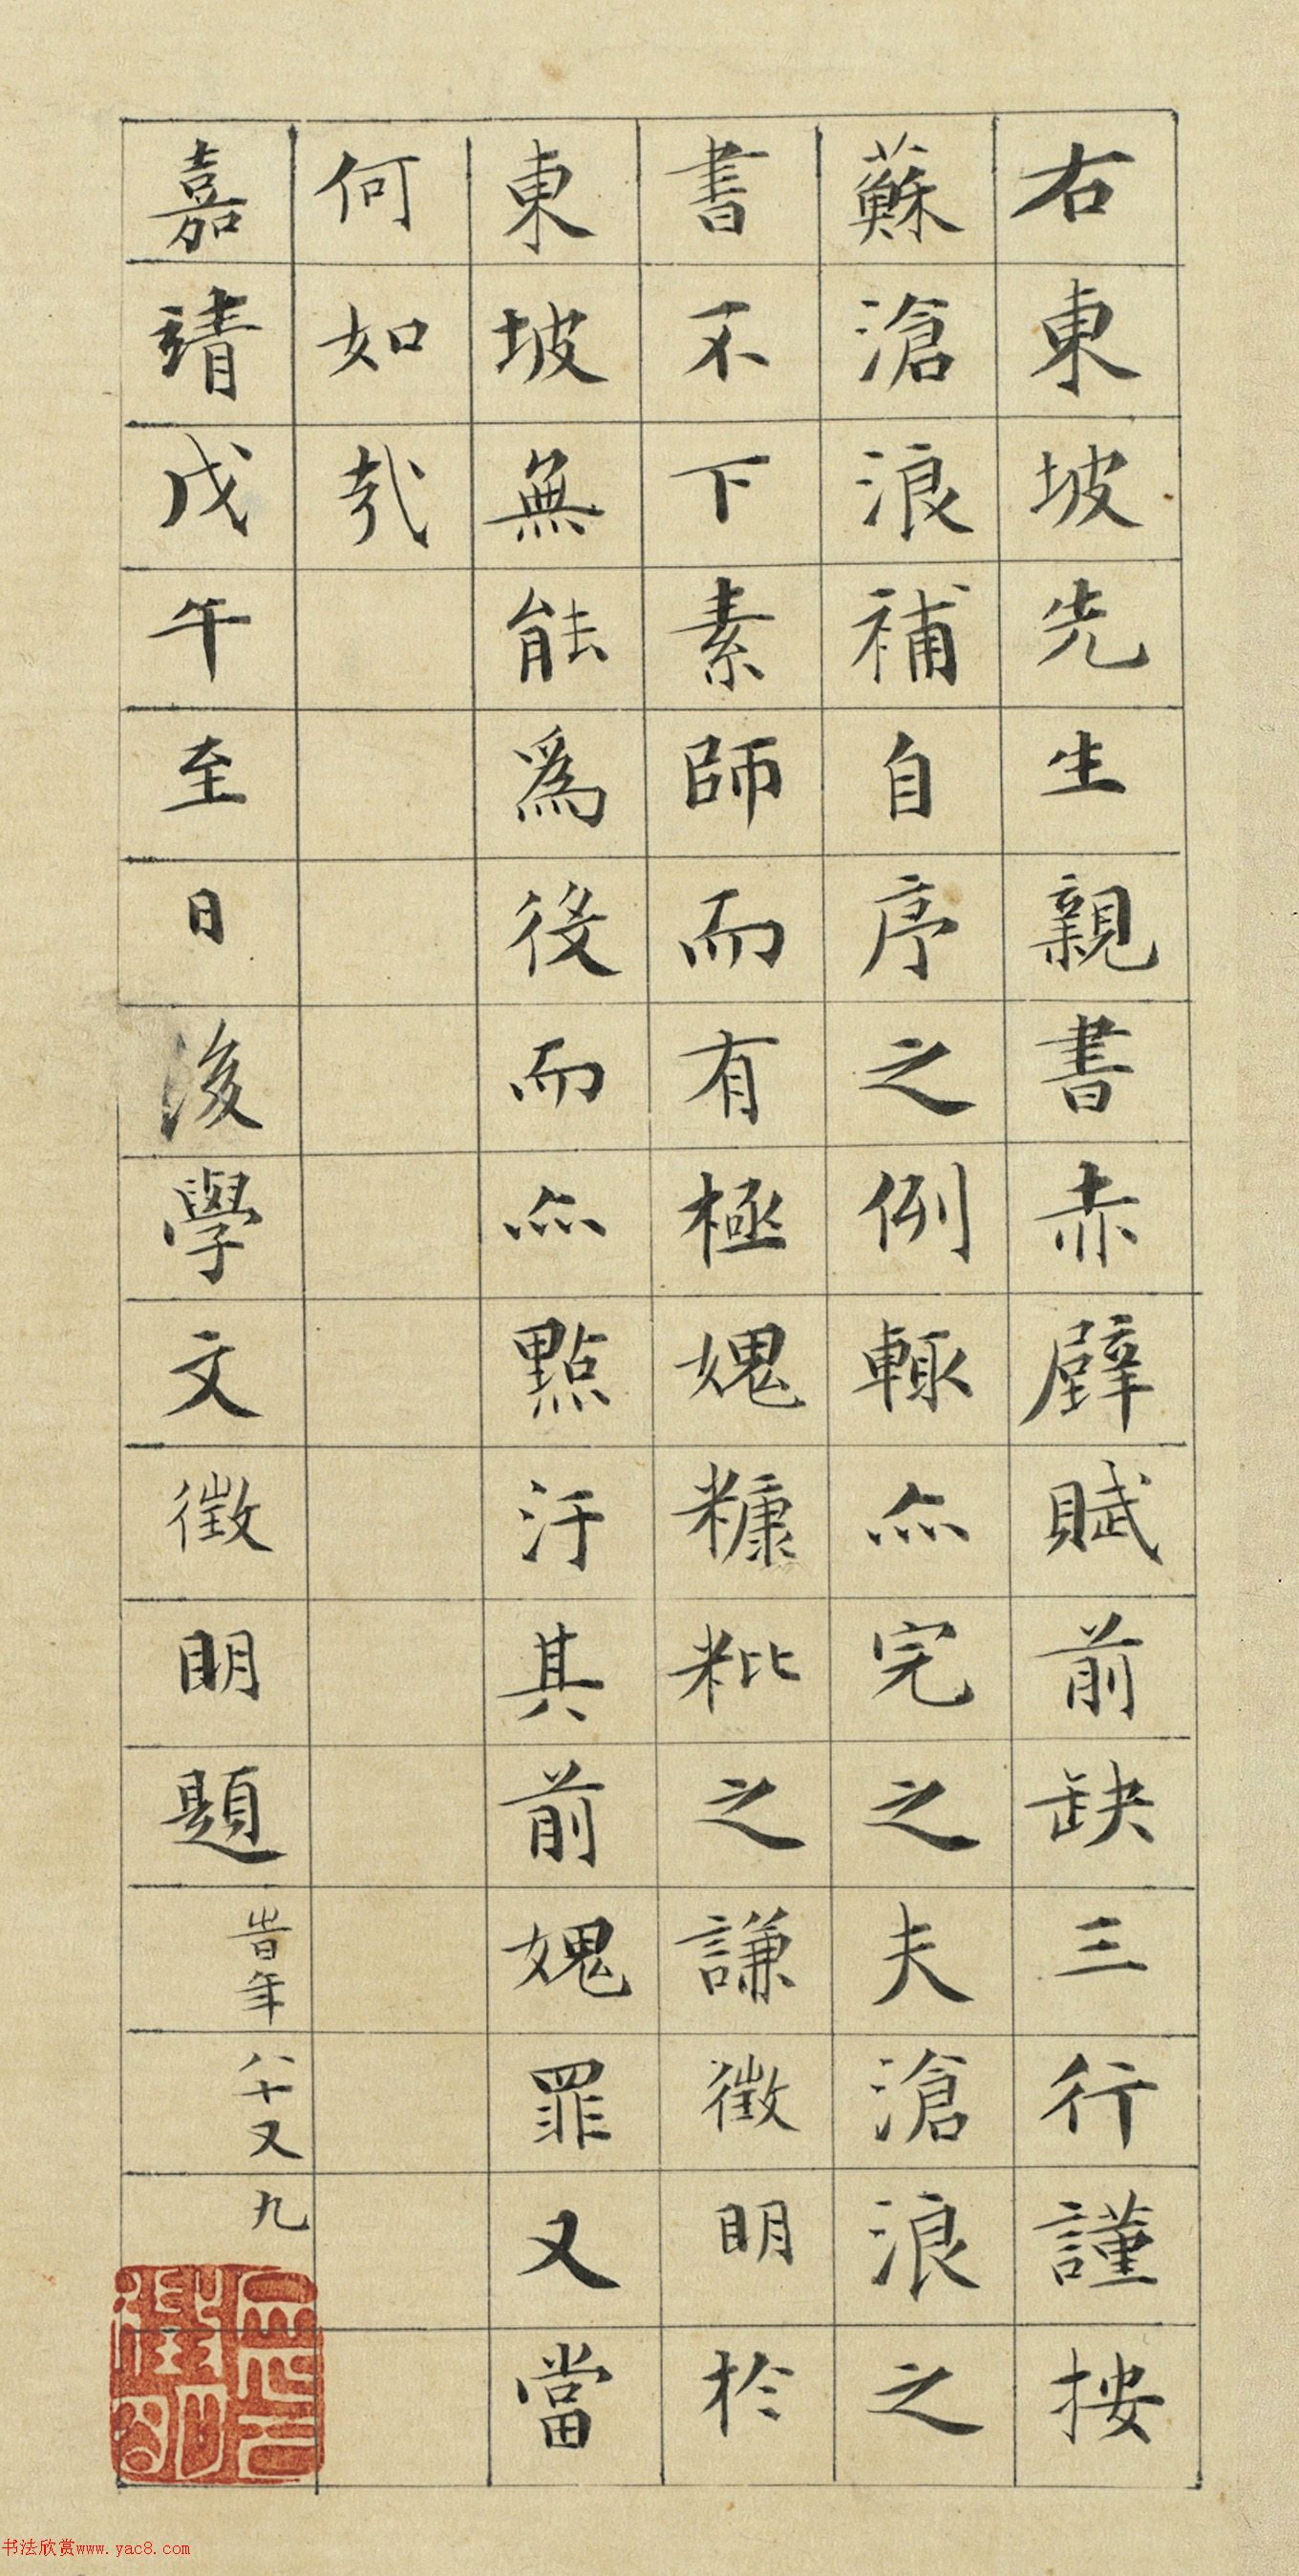 右東坡先生親書赤壁賦前缺三行謹按
蘇滄浪補自序之例輒亦完之夫滄浪之
書不下素師而有極媿糠粃之謙徵明於
東坡無能為後而亦點汙其前媿罪又當
何如哉
嘉靖戊午至日後學文徵明題旹年八十又九
书法欣赏www.yac8.com